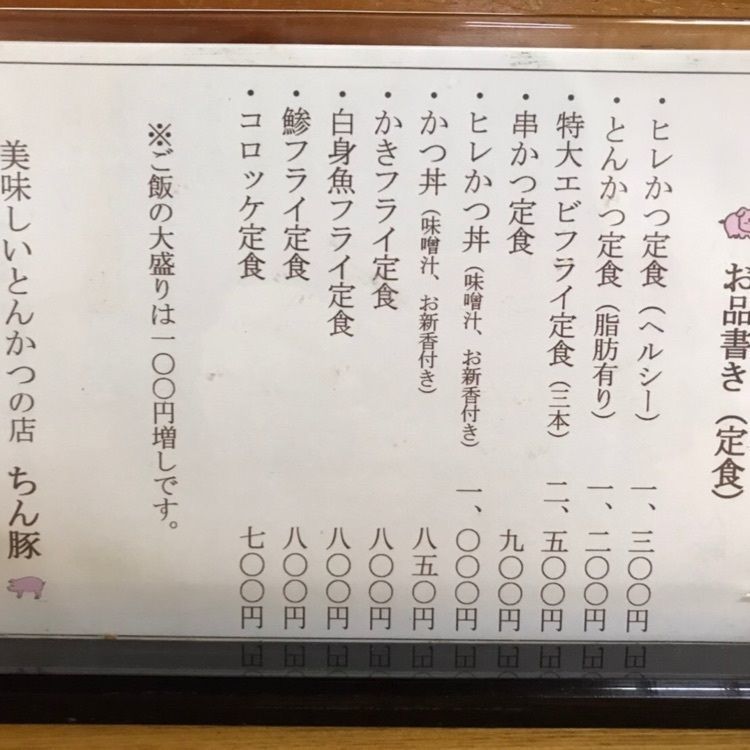 お品書き（定食）
・ヒレかつ定食（ヘルシー） 一、三〇〇円
・とんかつ定食（脂肪有り） 一、二〇〇円
・特大エビフライ定食（三本） 二、五〇〇円
・串かつ定食 九〇〇円
・ヒレかつ丼（味噌汁、お新香付き） 一、〇〇〇円
・かつ丼（味噌汁、お新香付き） 八五〇円
・かきフライ定食 八〇〇円
・白身魚フライ定食 八〇〇円
・鯵フライ定食 八〇〇円
・コロッケ定食 七〇〇円
※ご飯の大盛りは一〇〇円増しです。
美味しいとんかつの店 ちん豚